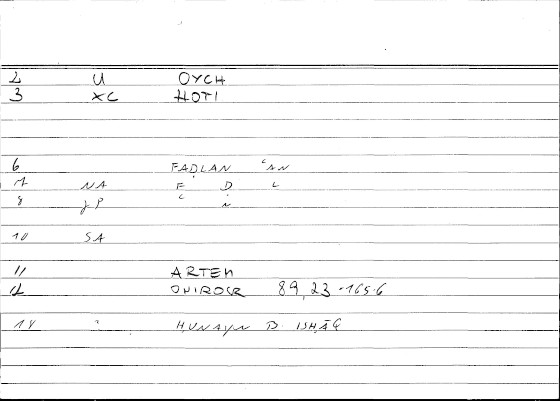 2 U OYCH
3 XC HOTI
6 FADLAN
7 NA F D L
8 JP
10 SA
11 ARTEM
12 ONIROCR 89,23-165.6
HUNAYN B. ISHĀQ